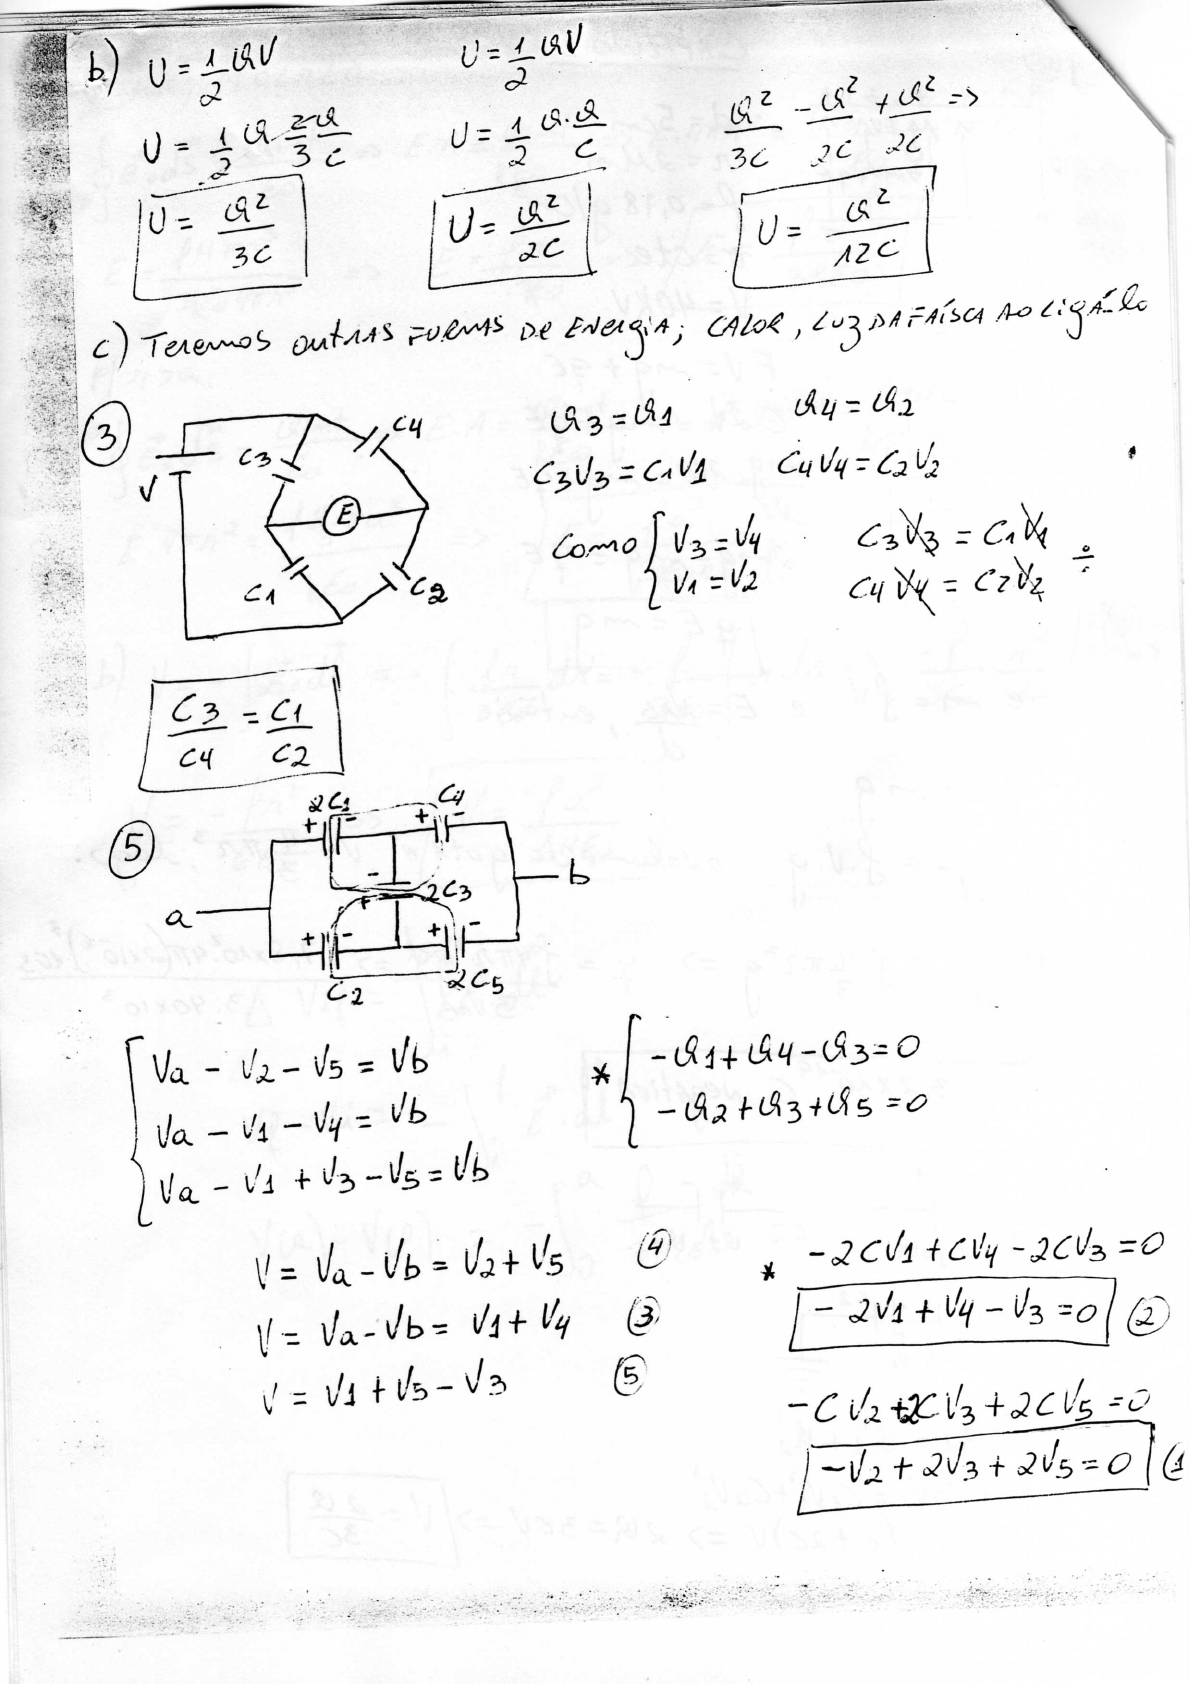 b.) U = 1/2 QV    U = 1/2 QV
U = 1/2 Q 2Q/3C    U = 1/2 Q·Q/C    Q²/3C - Q²/2C + Q²/2C =>
U = Q²/3C    U = Q²/2C    U = Q²/12C
c) Teremos outras formas de energia; calor, luz da faísca ao ligá-lo
3
C4
C3
V
E
C1
C2
Q3 = Q1    Q4 = Q2
C3V3 = C1V1    C4V4 = C2V2
Como { V3 = V4    C3V3 = C1V1
V1 = V2    C4V4 = C2V2 ÷
C3/C4 = C1/C2
5
2C1 C4
+ - + -
a - 2C3 b
+
+ - + -
C2 2C5
Va - V2 - V5 = Vb
Va - V1 - V4 = Vb
Va - V1 + V3 - V5 = Vb
* { -Q1 + Q4 - Q3 = 0
-Q2 + Q3 + Q5 = 0
V = Va - Vb = V2 + V5 (4)
V = Va - Vb = V1 + V4 (3)
V = V1 + V5 - V3 (5)
* -2CV1 + CV4 - 2CV3 = 0
-2V1 + V4 - V3 = 0 (2)
-CV2 + 2CV3 + 2CV5 = 0
-V2 + 2V3 + 2V5 = 0 (1